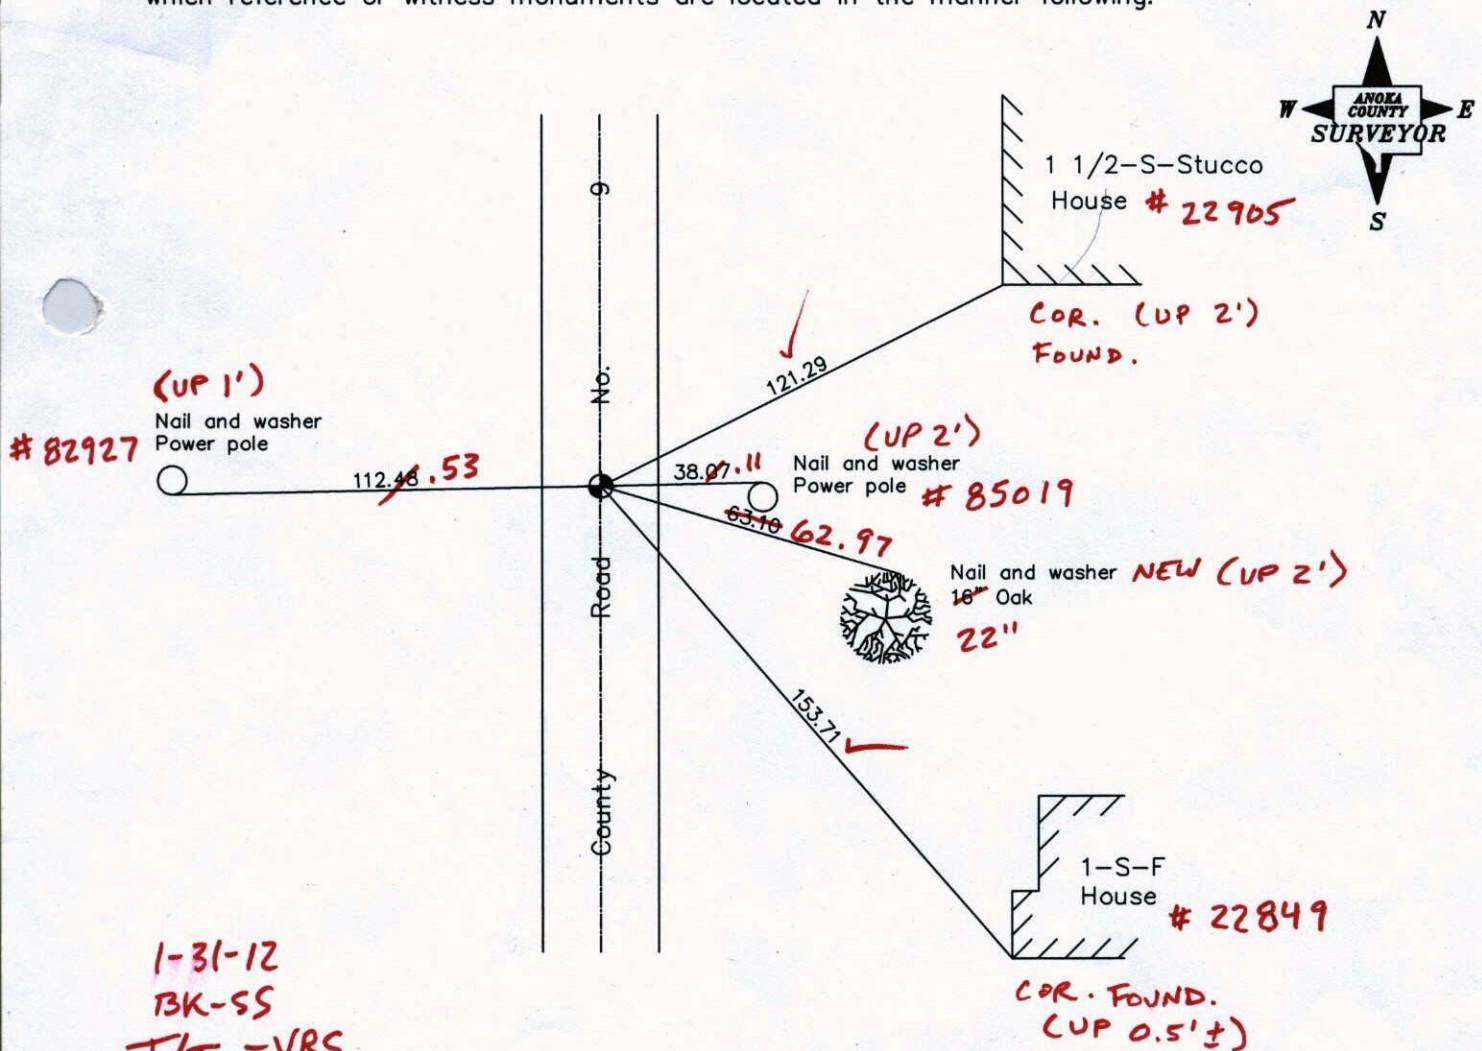 which reference or witness monuments are located in the manner following:
N
W ANOKA COUNTY E
SURVEYOR
S
1 1/2-S-Stucco
House # 22905
COR. (UP 2')
FOUND.
121.29
(UP 1')
Nail and washer
Power pole
# 82927
112.48 .53
38.07 .11
(UP 2')
Nail and washer
Power pole # 85019
63.10 62.97
Nail and washer NEW (UP 2')
16" Oak
22"
153.71
County Road No. 9
1-S-F
House # 22849
COR. FOUND.
(UP 0.5'±)
1-31-12
BK-SS
-VRS